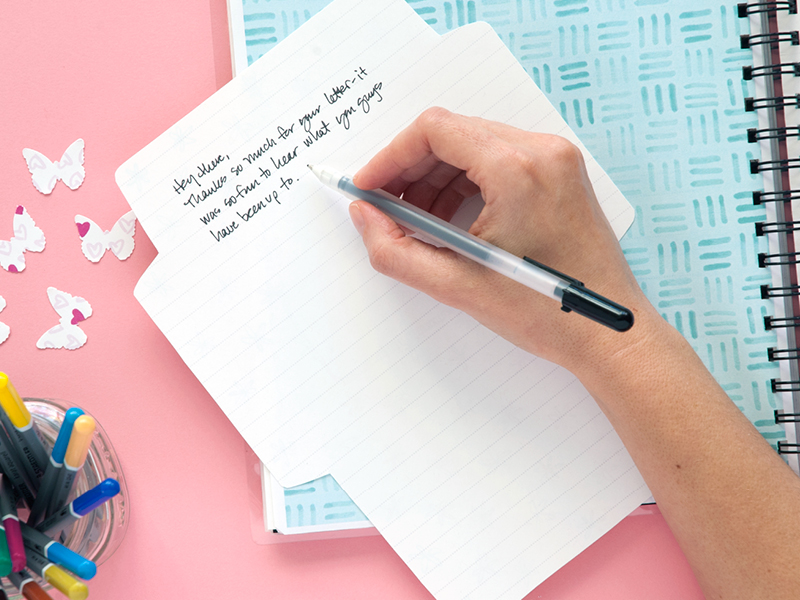 Hey there,
Thanks so much for your letter-it
was so fun to hear what you guys
have been up to.